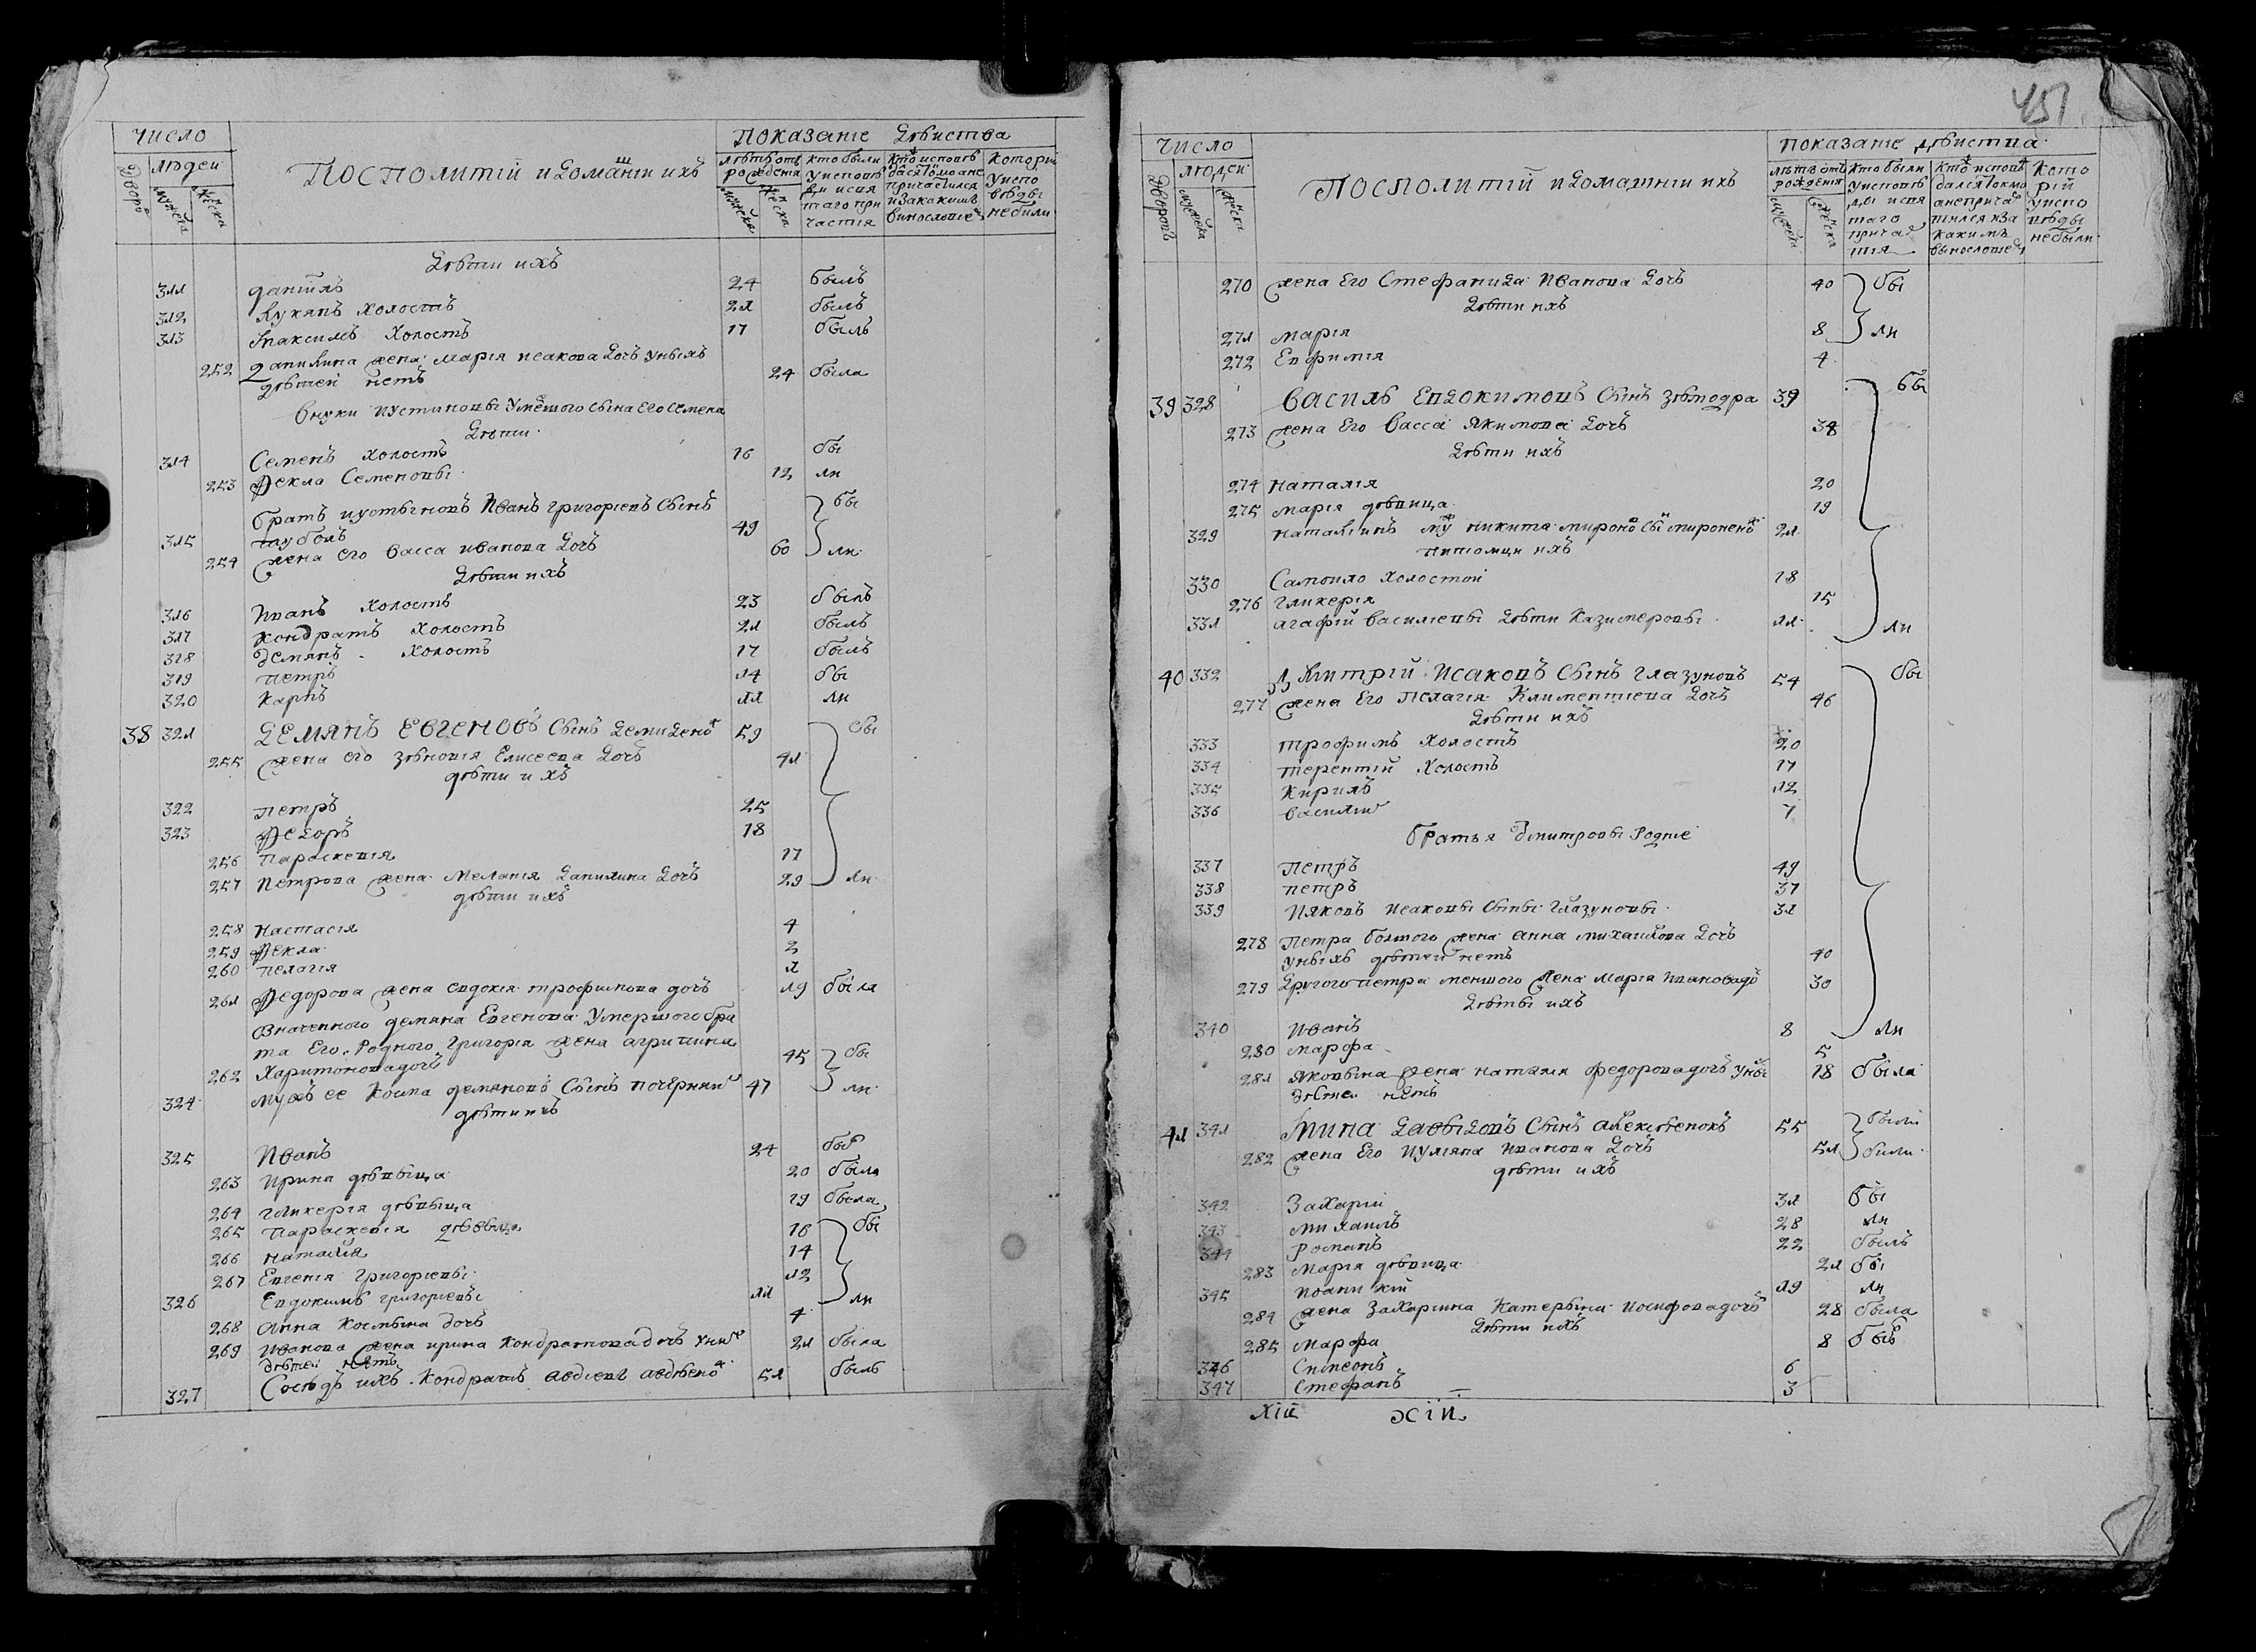 число
Показаніе действа
Дворо
людей
мужска
женска
Посполитій и домашніи ихъ
летъ отъ рождения
кто были у исповеди и святаго причастія
Которіи у исповеды не были
Дѣти ихъ
311 Даніилъ 24 былъ
312 Лукянъ холостъ 21 былъ
313 Максимъ холостъ 17 былъ
252 Данилина жена Марія Исакова дочъ у ныхъ
дѣтей нетъ 24 была
внуки Иустиновы умершого сына его Семена
Дѣти
314 Семенъ холостъ 16 бы
253 Фекла Семеновы 12 ли
братъ Иустыновъ Иванъ Григориевъ сынъ бы
315 49
254 жена его Васса Иванова дочъ 60 ли
Дѣти ихъ
316 Иванъ холостъ 23 былъ
317 Кондратъ холостъ 21 былъ
318 Демянъ холостъ 17 былъ
319 Петръ 14 бы
320 Карпъ 11 ли
38 321 Демянъ Евгеновъ сынъ Демиденко 59 бы
255 жена его Зѣновія Елисеева дочъ 41
дѣти ихъ
322 Петръ 25
323 Федоръ 18
256 Параскевія 17
257 Петрова жена Меланія Данилина дочъ 29 ли
дѣти ихъ
258 Настасія 4
259 Фекла 2
260 Пелагія 1
261 Федорова жена Евдокія Трофимова дочъ 19 была
Значенного Демяна Евгенова умершого бра
та его родного Григорія жена Агрипина
262 Харитонова дочъ 45 бы
324 Мужъ ее Косма Демяновъ сынъ 47 ли
дѣти ихъ
325 Иванъ 24 былъ
263 Ирина дѣвыца 20 была
264 Гликерія дѣвыца 19 была
265 Параскевія дѣвыца 16 бы
266 Наталія 14
267 Евгенія Григориевы 12
326 Евдокимъ Григориевы 11 ли
268 Анна Космына дочъ 4
269 Иванова жена Ирина Кондратова дочъ у ныхъ 21 была
дѣтей нетъ
327 Соседъ ихъ Кондратъ Авдіевъ Авдѣенко 51 былъ
451
число
показаніе действа
дворовъ
людей
мужеска
женска
Посполитіи и домашніи ихъ
летъ отъ рожденія
Кто были у исповеды и святаго причастия
Которіи у исповеды не были
270 жена его Стефанида Иванова дочъ 40 бы
Дѣти ихъ
271 Марія 8 ли
272 Евфимія 4
39 328 Василь Евдокимовъ сынъ 39 бы
273 жена его Васса Якимова дочъ 38
Дѣти ихъ
274 Наталія 20
275 Марія дѣвица 19
329 Наталіинъ муж Никита Миронов сын Мироненко 21
питомци ихъ
330 Самоило холостой 18
276 Гликерія 15
331 Агафій Василіевы дѣти Казимеровы 11 ли
40 332 Дмитрій Исаковъ сынъ Глазуновъ 54 бы
277 жена его Пелагія Климентиева дочъ 46
Дѣти ихъ
333 Трофимъ холостъ 20
334 Терентій холостъ 17
335 Кирилъ 12
336 Василій 7
братья Дмитровы родніе
337 Петръ 49
338 Петръ 37
339 Ияковъ Исаковы сыны Глазуновы 31
278 Петра болшого жена Анна Михаилова дочъ
у ныхъ дѣтей нетъ 40
279 Другого Петра меншого жена Марія Иванова до 30
Дѣты ихъ
340 Иванъ 8 ли
280 Марфа 5
281 Яковына жена Наталія Федорова дочъ у ныхъ 18 была
дѣтей нетъ
41 341 Мина Давыдовъ сынъ Алексѣенокъ 55 были
282 жена его Иуліяна Иванова дочъ 51 были
дѣти ихъ
342 Захарій 31 бы
343 Михаилъ 28 ли
344 Романъ 22 былъ
283 Марія дѣвица 21 бы
345 Иоаникій 19 ли
284 жена Захарина Катерына Иосифова дочъ 28 была
Дѣти ихъ
285 Марфа 8 былъ
346 Симеонъ 6
347 Стефанъ 3